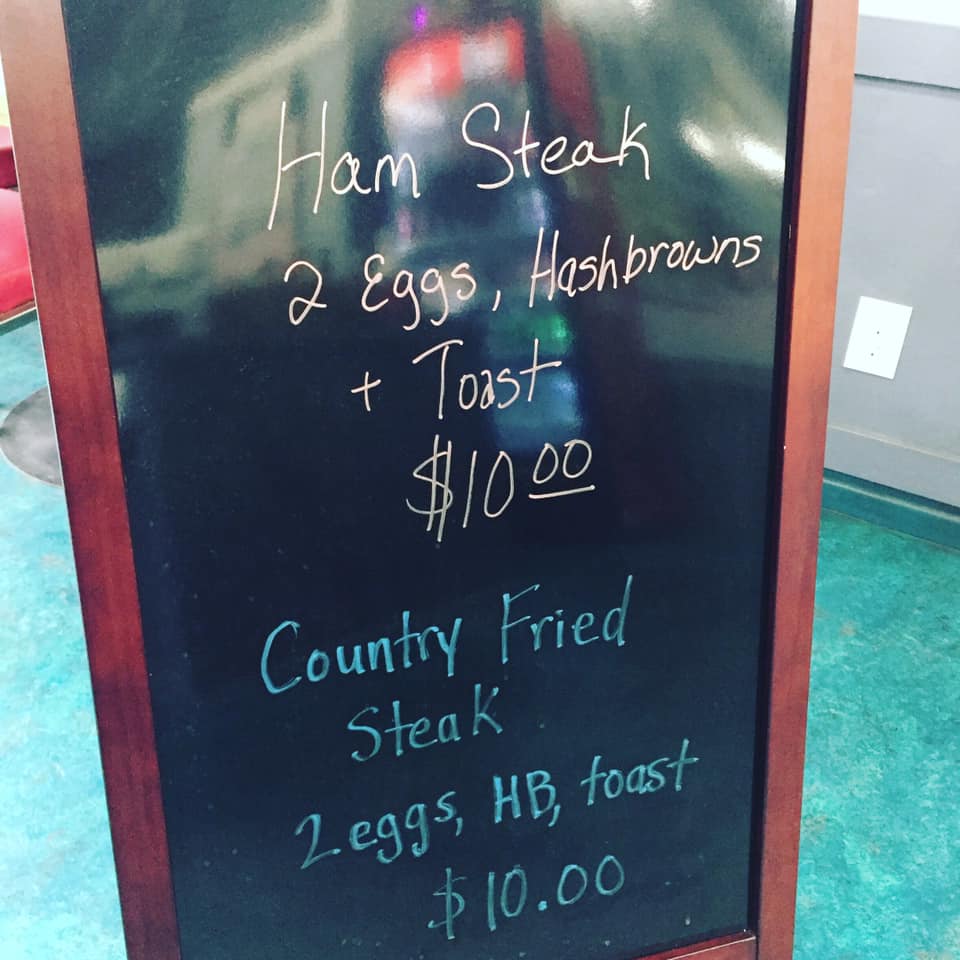 Ham Steak
2 Eggs, Hashbrowns
+ Toast
$10 00
Country Fried
Steak
2 eggs, HB, toast
$10.00